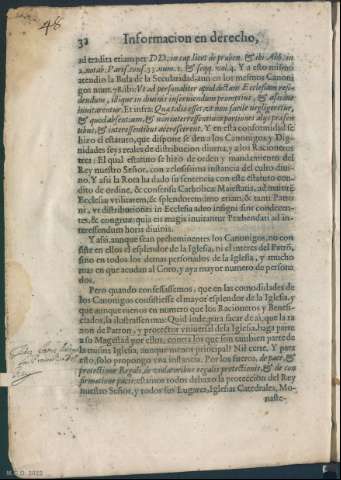 46
32 Informacion en derecho,
ad tradita etiam per DD. in cap. licet de præben. & ibi Abb. in
2. notab. Paris. cons. 33. num. 2. & seqq. vol. 4. Y a esto mismo
atendiò la Bula de la Secularidad, aun en los mesmos Canoni
gos num. 78. ibi: Vt ad personaliter apud dictam Ecclesiam resi-
dendum, idque in diuinis inseruiendum promptius, & assidue
inuitarentur. Et infra: Qua talis esset, vt non facile negligeretur,
& quod absentium, & non interessentium portiones alijs præsen
tibus, & interessentibus accrescerent. Y en esta conformidad se
hizo el estatuto, que dispone se den a los Canonigos, y Dig-
nidades seys reales de distribucion diurna, y a los Racioneros
tres: El qual estatuto se hizo de orden y mandamiento del
Rey nuestro Señor, con zelosissima instancia del culto diui-
no. Y assi la Rota ha dado su sentencia con este estatuto con-
dito de ordine, & consensu Catholicæ Maiestatis, ad maiorẽ
Ecclesiæ vtilitatem, & splendorem imo etiam, & tanti Patro
ni, vt distributiones in Ecclesia adeo insigni sint condecen-
tes, & congruæ: quia eis magis inuitantur Præbendati ad in-
teressendum horis diuinis.
Y assi, aunque sean preheminentes los Canonigos, no con
siste en ellos el esplendor de la Iglesia, ni el interes del Patrõ,
sino en todos los demas personados de la Iglesia, y mucho
mas en que acudan al Coro, y aya mayor numero de persona
dos.
Pero quando confessassemos, que en las comodidades de
los Canonigos consistiesse el mayor esplendor de la Iglesia, y
que aunque menos en numero que los Racioneros y Benefi-
ciados, la ilustrassen mas: Quid inde, para sacar de ai, que la ra
zon de Patron, y protector vniuersal de la Iglesia, haga parte
a su Magestad por ellos, contra los que son tambien parte de
la misma Iglesia, aunque menos principal? Nil certe. Y para
esto, solo propongo vna instancia. Por los fueros, de pace, &
protectione Regali, de violatoribus regalis protectionis, & de con
firmatione pacis: estamos todos debaxo la proteccion del Rey
nuestro Señor, y todos sus Lugares, Iglesias Catedrales, Mo-
naste-
M.C.D. 2022